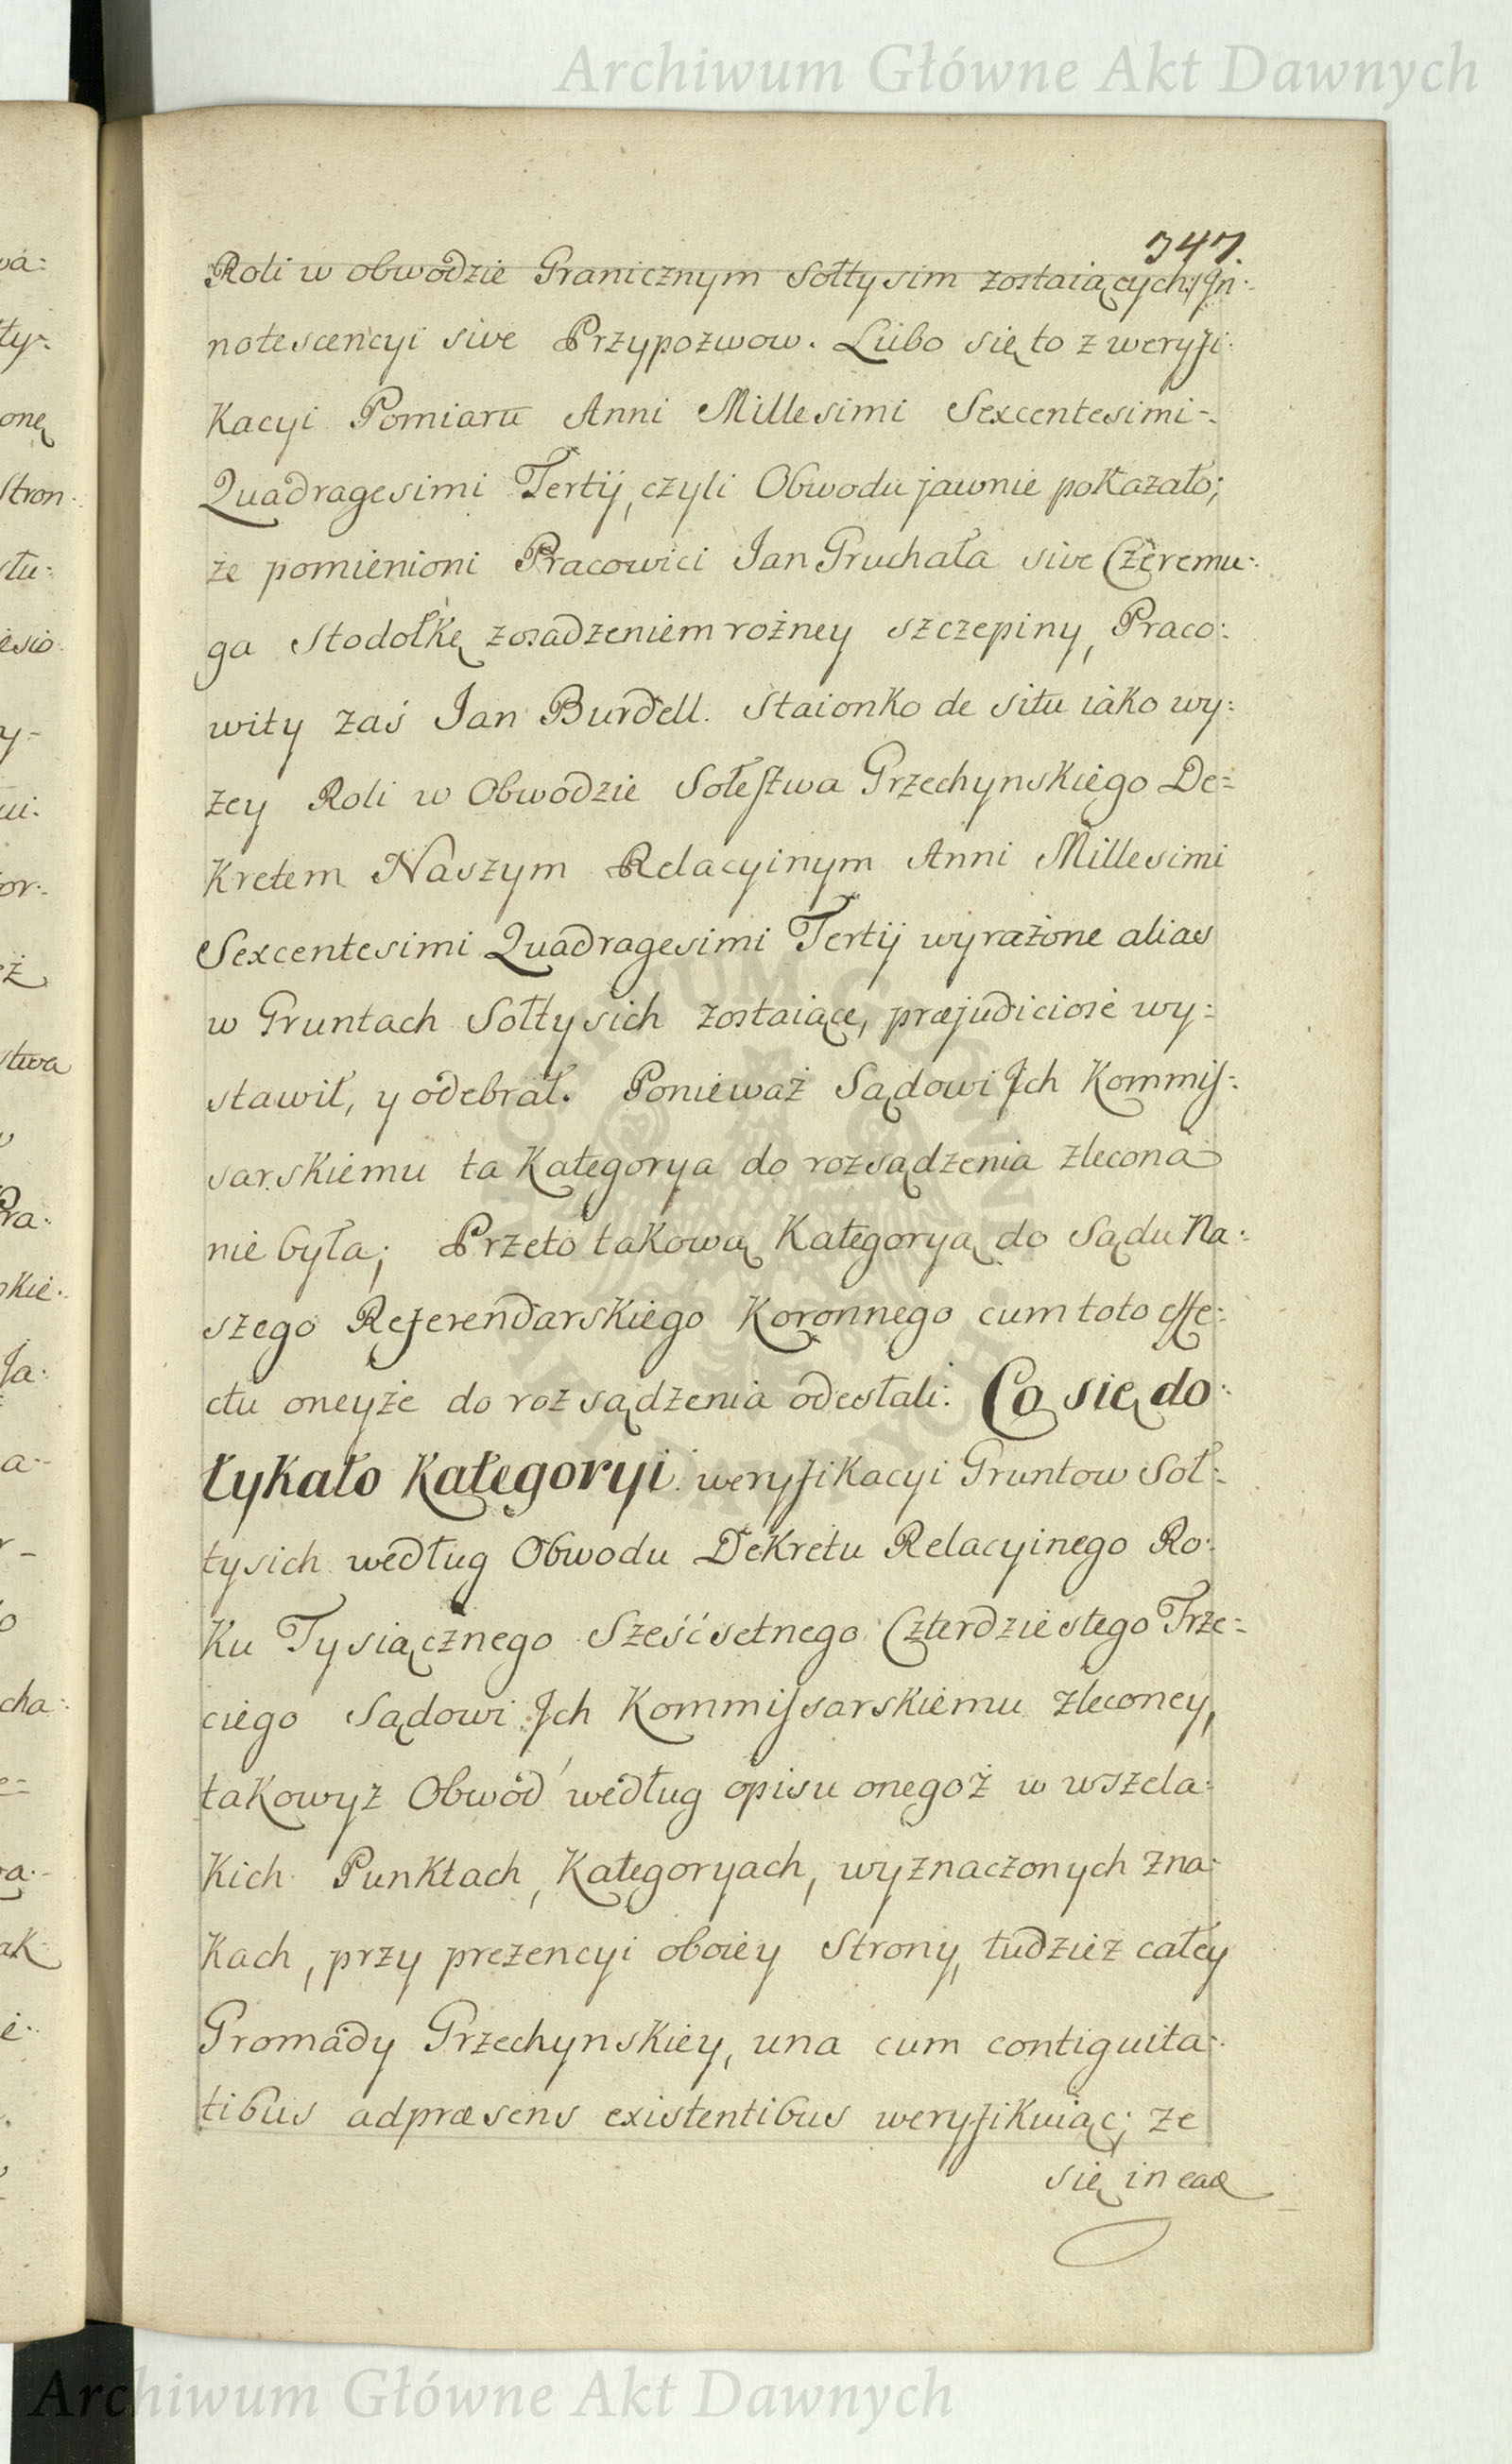 Archiwum Główne Akt Dawnych
347.
Roli w obwodzie Granicznym Sołtysim zostaiących:/ In:
notescencyi sive Przypozwow. Lubo się to z weryfi:
kacyi Pomiaru Anni Millesimi Sexcentesimi-
Quadragesimi Tertij, czyli Obwodu jawnie pokazało;
że pomienioni Pracowici Jan Gruchała sive Czeremu:
ga Stodołkę zosadzeniem rożney szczepiny, Praco:
wity zaś Jan Burdell. Staionko de situ iako wy:
żey Roli w Obwodzie Sołestwa Grzechynskiego De=
kretem Naszym Relacyinym Anni Millesimi
Sexcentesimi Quadragesimi Tertij wyrażone alias
w Gruntach Sołtysich zostaiące, præjudiciose wy:
stawił, y odebrał. Ponieważ Sądowi Ich Kommis:
sarskiemu ta Kategorya do rozsądzenia zlecona
nie była; Przeto takową Kategoryą do Sądu Na:
szego Referendarskiego Koronnego cum toto effe:
ctu oneyże do rozsądzenia odesłali. Co się do:
tykało Kategoryi weryfikacyi Gruntow Soł:
tysich według Obwodu Dekretu Relacyinego Ro:
ku Tysiącznego Sześćsetnego Czterdziestego Trze=
ciego Sądowi Ich Kommissarskiemu zleconey,
takowyż Obwód według opisu onegoż w wszela:
kich Punktach, Kategoryach, wyznaczonych zna:
kach, przy prezencyi oboiey Strony, tudzież całey
Gromady Grzechynskiey, una cum contiguita:
tibus adpræsens existentibus weryfikuiąc; ze
się in eaq
Archiwum Główne Akt Dawnych